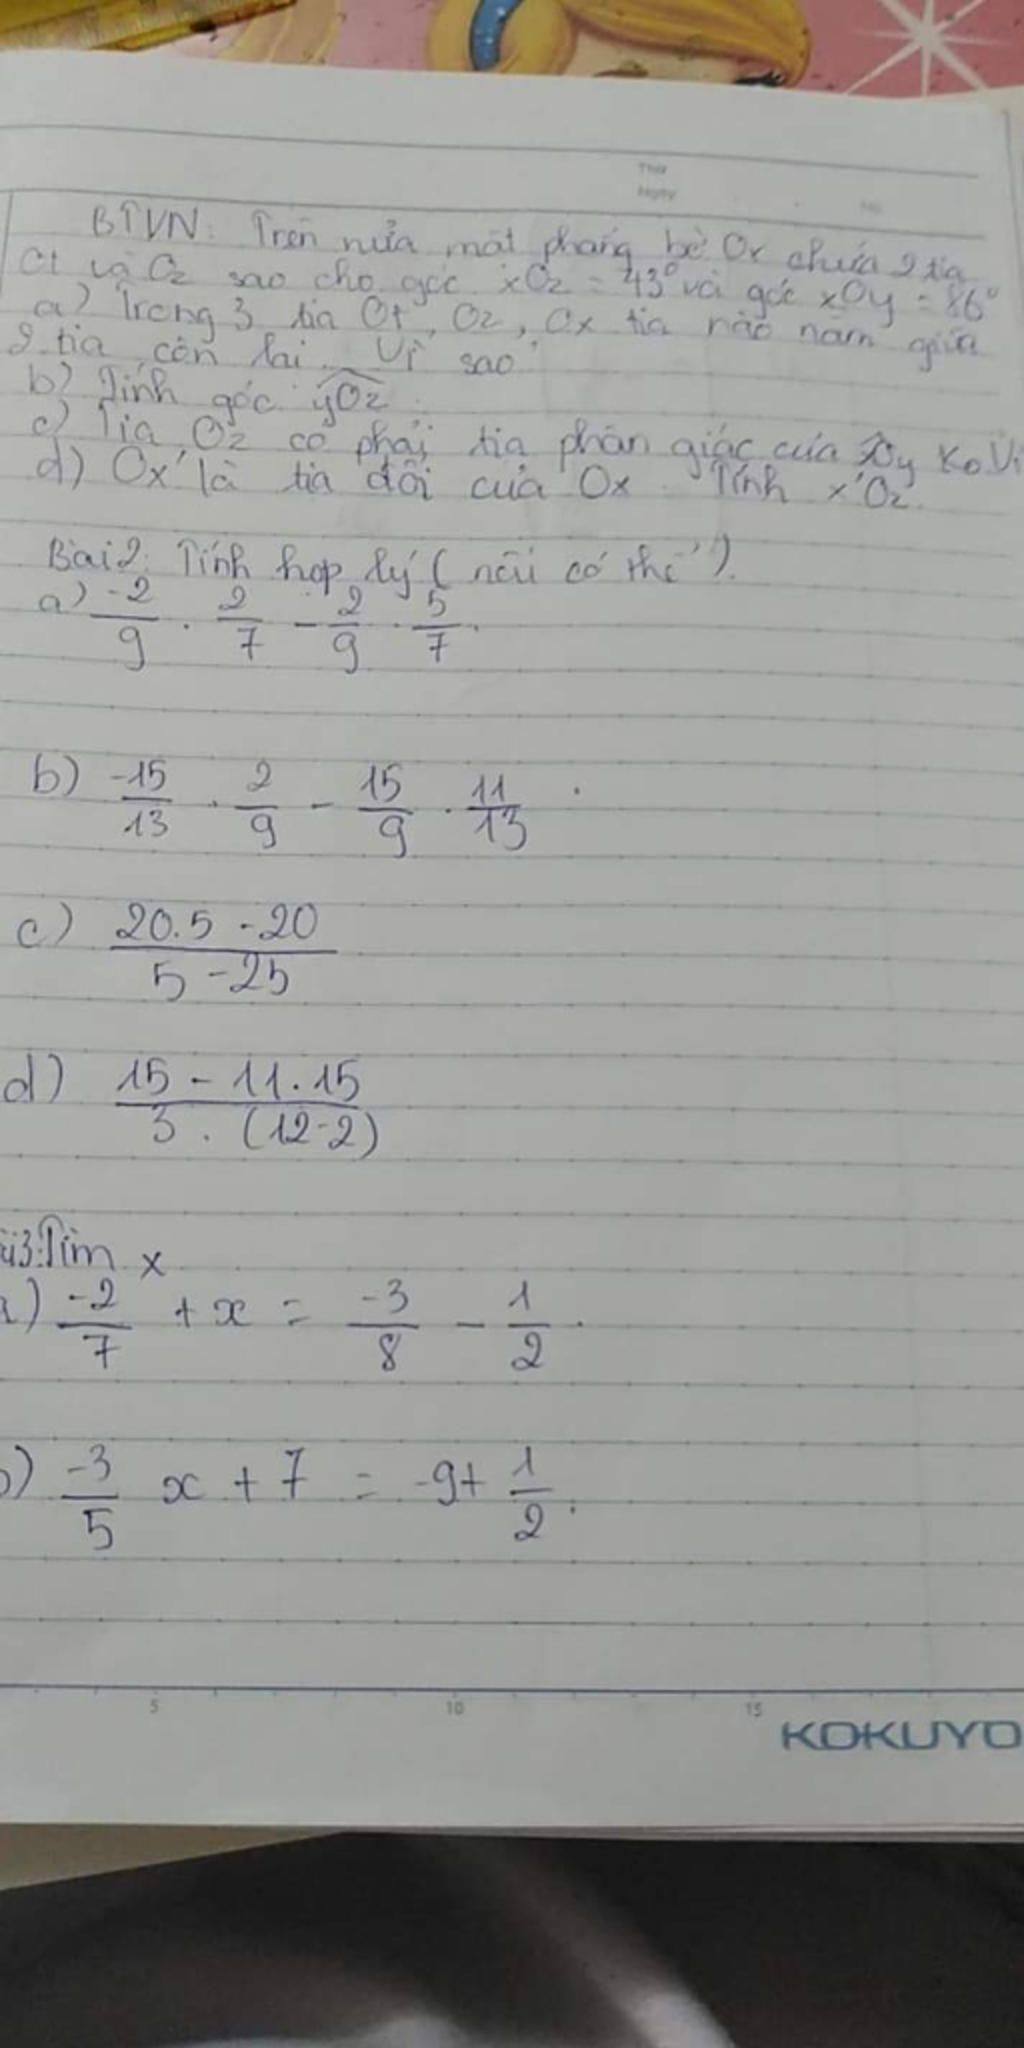 Thứ
Ngày
No.
BTVN: Trên nửa mặt phẳng bờ Ox chứa 2 tia
Ot và Oz sao cho góc xOz = 43° và góc xOy = 86°
a) Trong 3 tia Ot, Oz, Ox tia nào nằm giữa
2 tia còn lại. Vì sao
b) Tính góc yOz
c) Tia Oz có phải tia phân giác của xOy ko Vì
d) Ox' là tia đối của Ox. Tính x'Oz.
Bài 2: Tính hợp lý (nếu có thể).
a) -2/9 . 2/7 - 2/9 . 5/7.
b) -15/13 . 2/9 - 15/9 . 11/13
c) 20.5 - 20 / 5 - 25
d) 15 - 11.15 / 3 . (12-2)
3: Tìm x
) -2/7 + x = -3/8 - 1/2.
) -3/5 x + 7 = -9 + 1/2.
5 10 15
KOKUYO